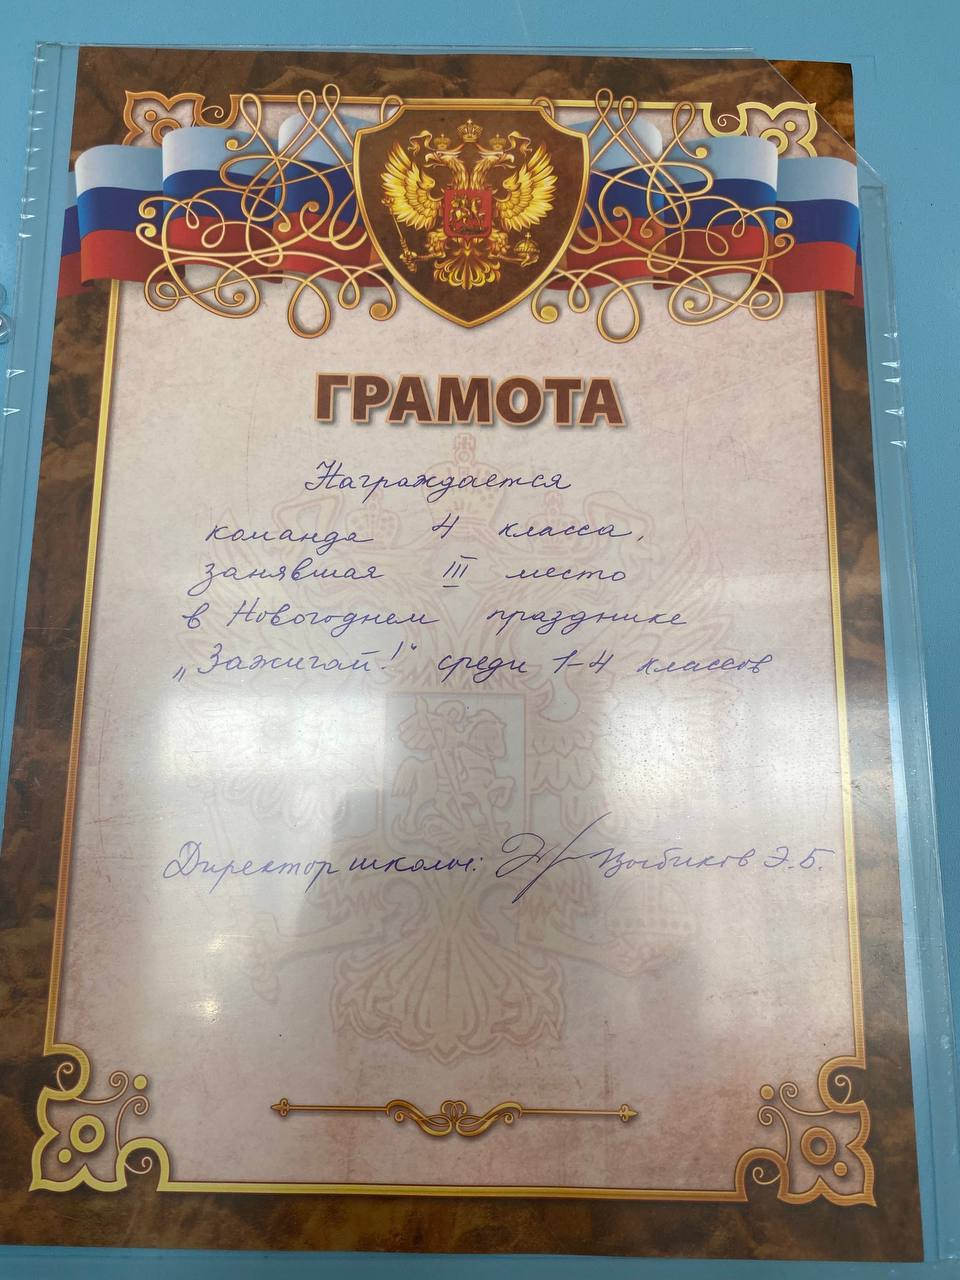 ГРАМОТА
Награждается
команда 4 класса,
занявшая III место
в Новогоднем празднике
„Зажигай!“ среди 1-4 классов
Директор школы: Цыбиков Э.Б.